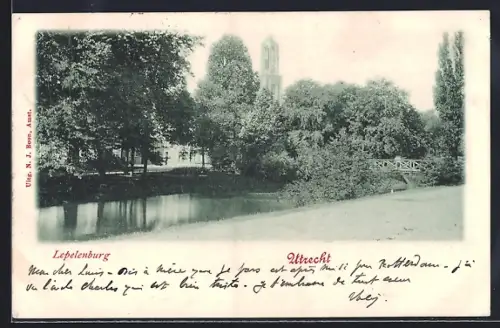 Uitg. N. J. Boon, Amst.
Lepelenburg
Utrecht
Mon cher Louis - Dis à mère que je pars cet après midi pour Rotterdam - j'ai
vu l'oncle Charles qui est bien triste - Je t'embrasse de tout cœur